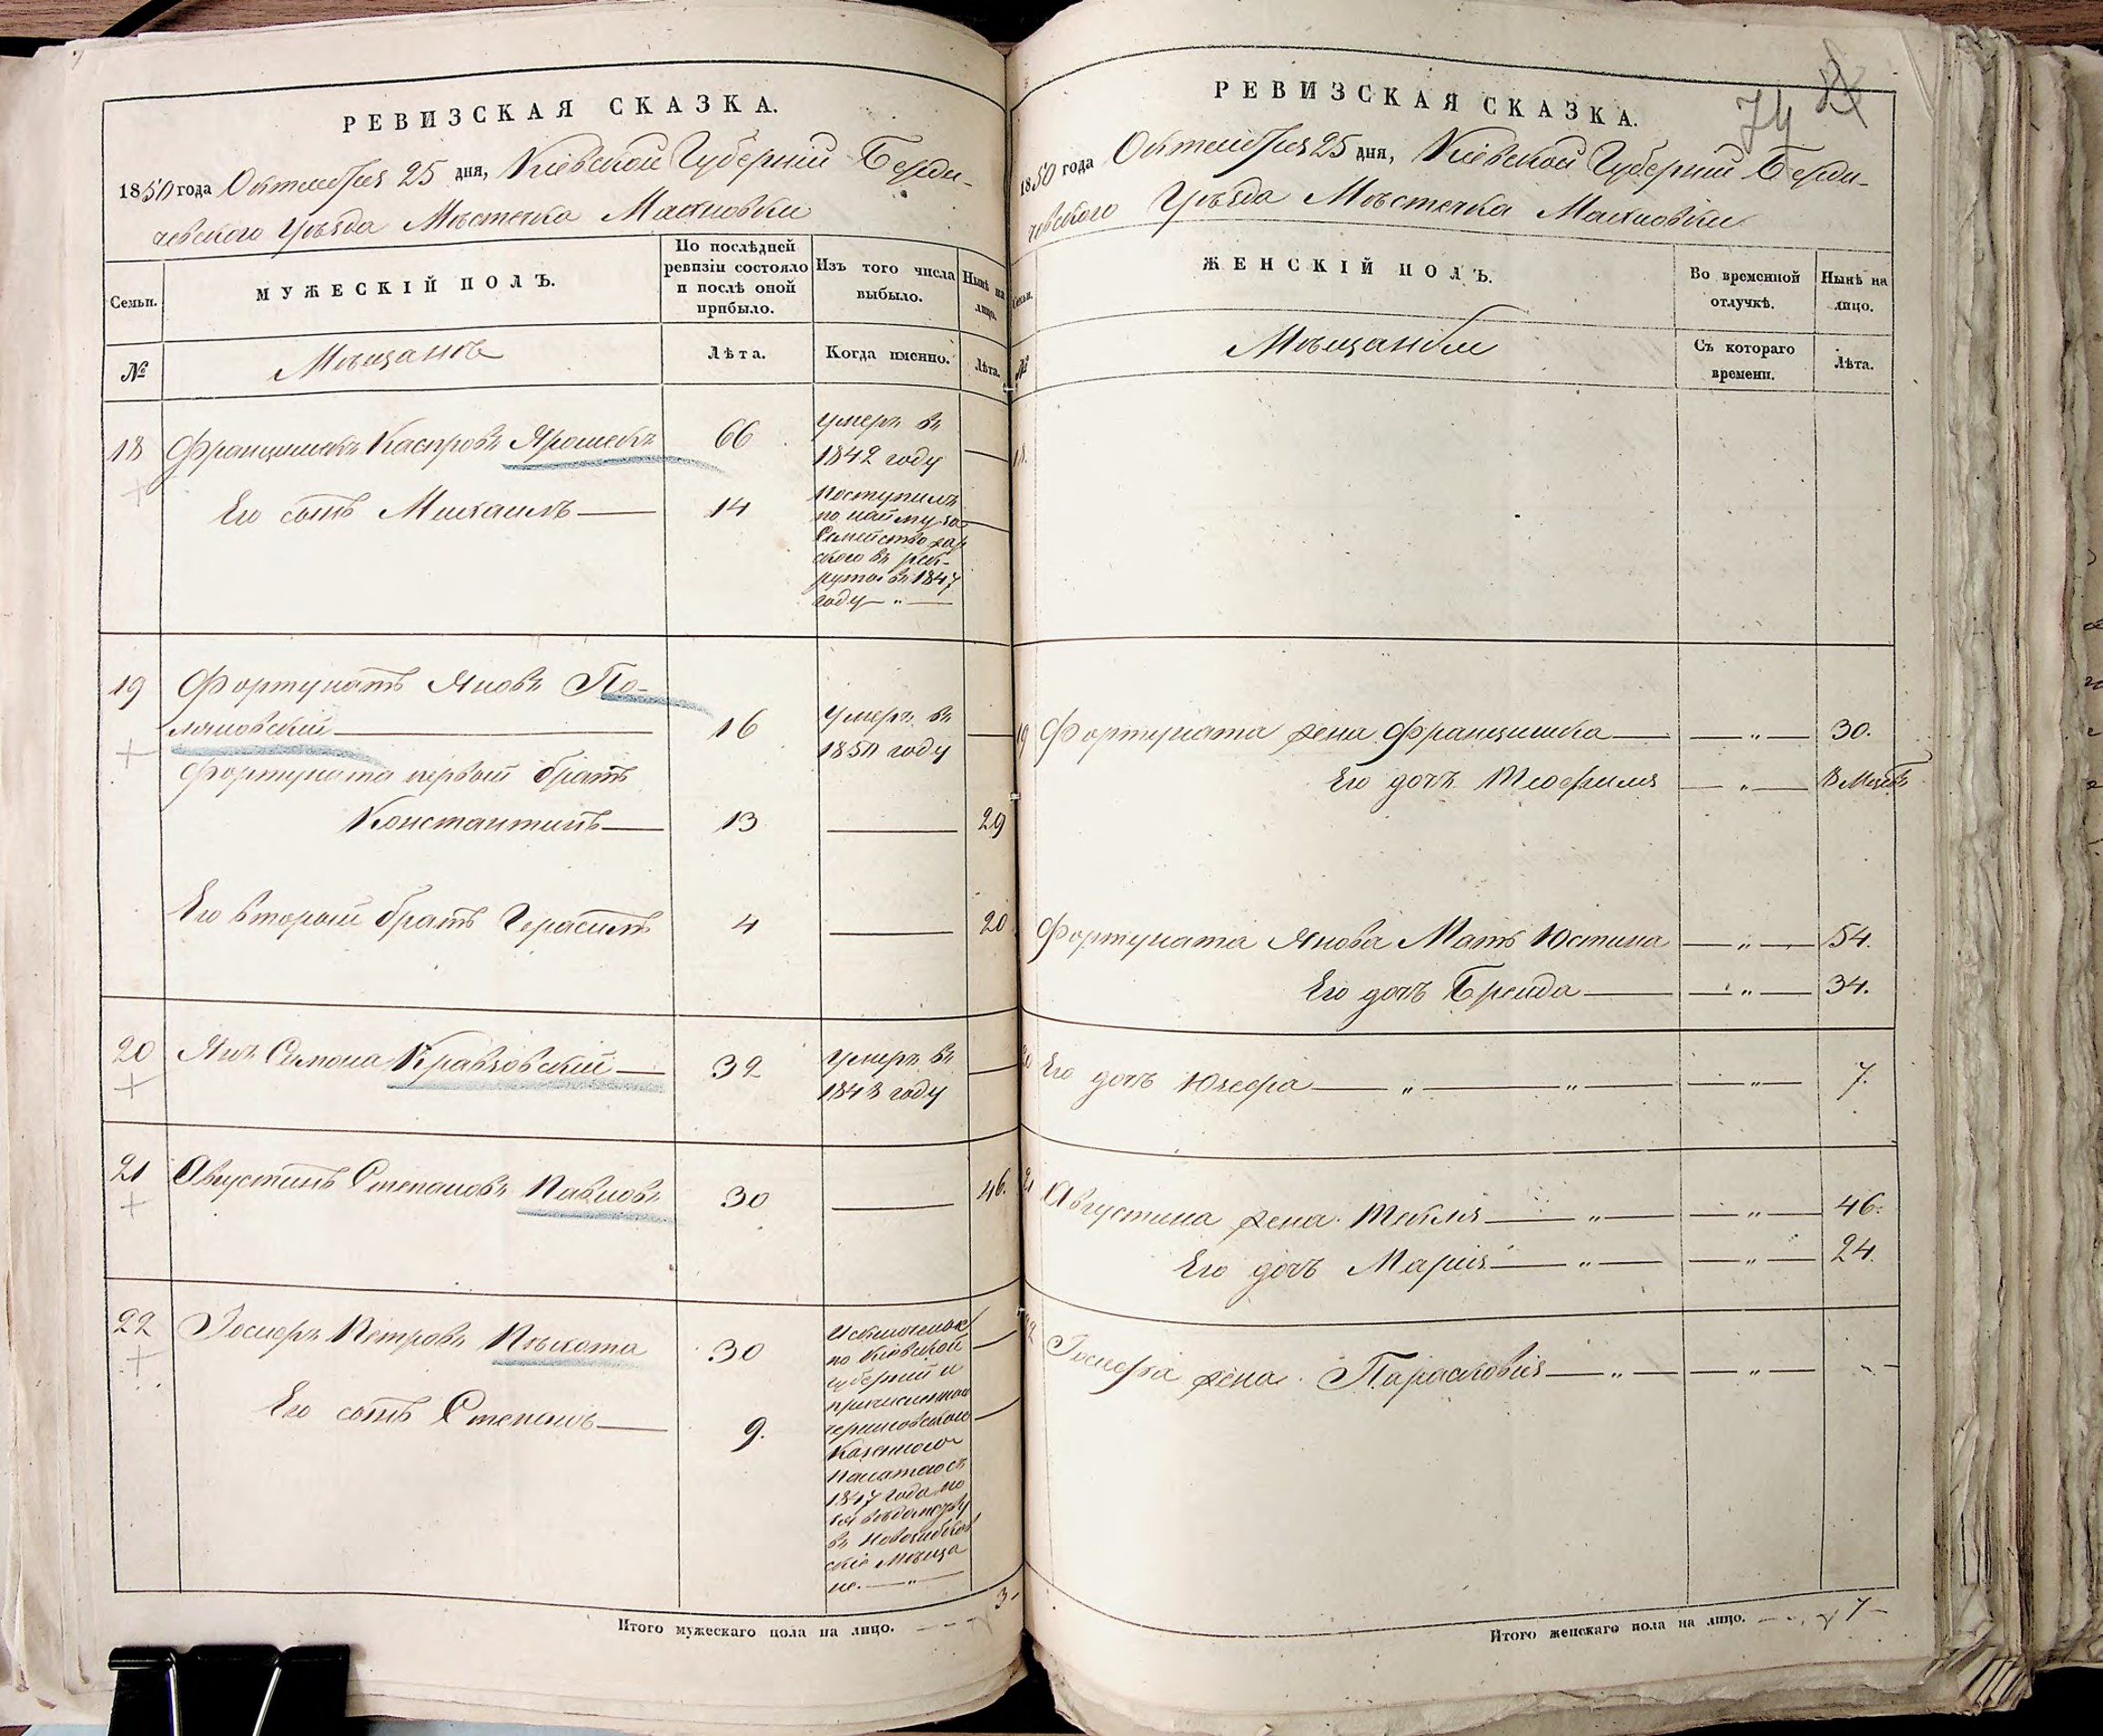 РЕВИЗСКАЯ СКАЗКА.
1850 года Октября 25 дня, Кіевской Губерніи Берди-
чевского Уѣзда Мѣстечка Махновки
Семьи.
МУЖЕСКІЙ ПОЛЪ.
По послѣдней
ревизіи состояло
и послѣ оной
прибыло.
Изъ того числа
выбыло.
Нынѣ на
лицо.
№
Мѣщанъ
Лѣта.
Когда именно.
Лѣта.
18 Францишекъ Каспровъ Ярошекъ 66 умеръ въ
1842 году
Его сынъ Михаилъ 14 Поступилъ
по найму за
Семейство
въ рек-
руты въ 1847
году
19 Фортунатъ Яновъ По-
ляновскій 16 Умеръ въ
1850 году
Фортуната первый братъ
Константинъ 13 29
Его второй братъ Герасимъ 4 20
20 Янъ Семона Кравзовскій 32 умеръ въ
1843 году
21 Августинъ Степановъ Павловъ 30 46.
22 Іосифъ Петровъ Пѣхота 30 Исключены
по Кіевской
губерніи и
причислены
Его сынъ Степанъ 9. черниговскою
Казенною
Палатою съ
1847 года по
въ Новозыбков
скіе Мѣща
не.
3
Итого мужескаго пола на лицо.
74
РЕВИЗСКАЯ СКАЗКА.
1850 года Октября 25 дня, Кіевской Губерніи Берди-
чевского Уѣзда Мѣстечка Махновки
Семьи.
ЖЕНСКІЙ ПОЛЪ.
Во временной
отлучкѣ.
Нынѣ на
лицо.
№
Мѣщанки
Съ котораго
времени.
Лѣта.
18.
19 Фортуната жена Францишка 30.
Его дочь Теофиля 8 Мѣсяц
Фортуната Янова Мать Юстина 54.
Его дочь Бренда 34.
20 Его дочь Юзефа 7.
21 Августина жена Текля 46.
Его дочь Марія 24.
22 Іосифа жена Парасковія
7
Итого женскаго пола на лицо.